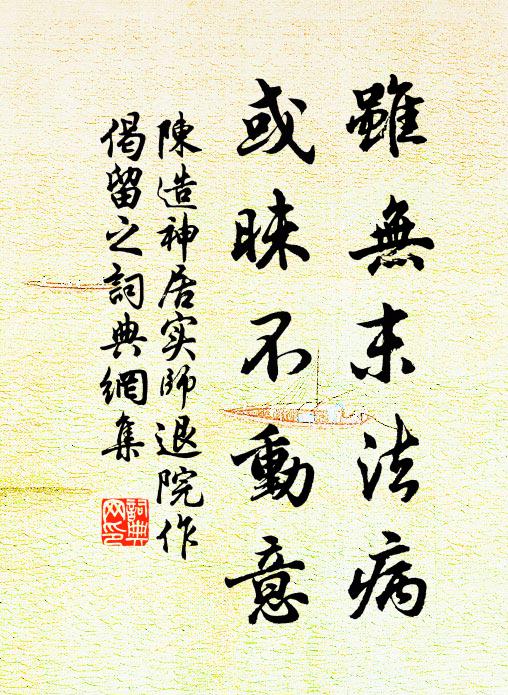 雖無末法病
或昧不動意
陳造神居实師退院作
偈留之詞典網集
詞典
网印